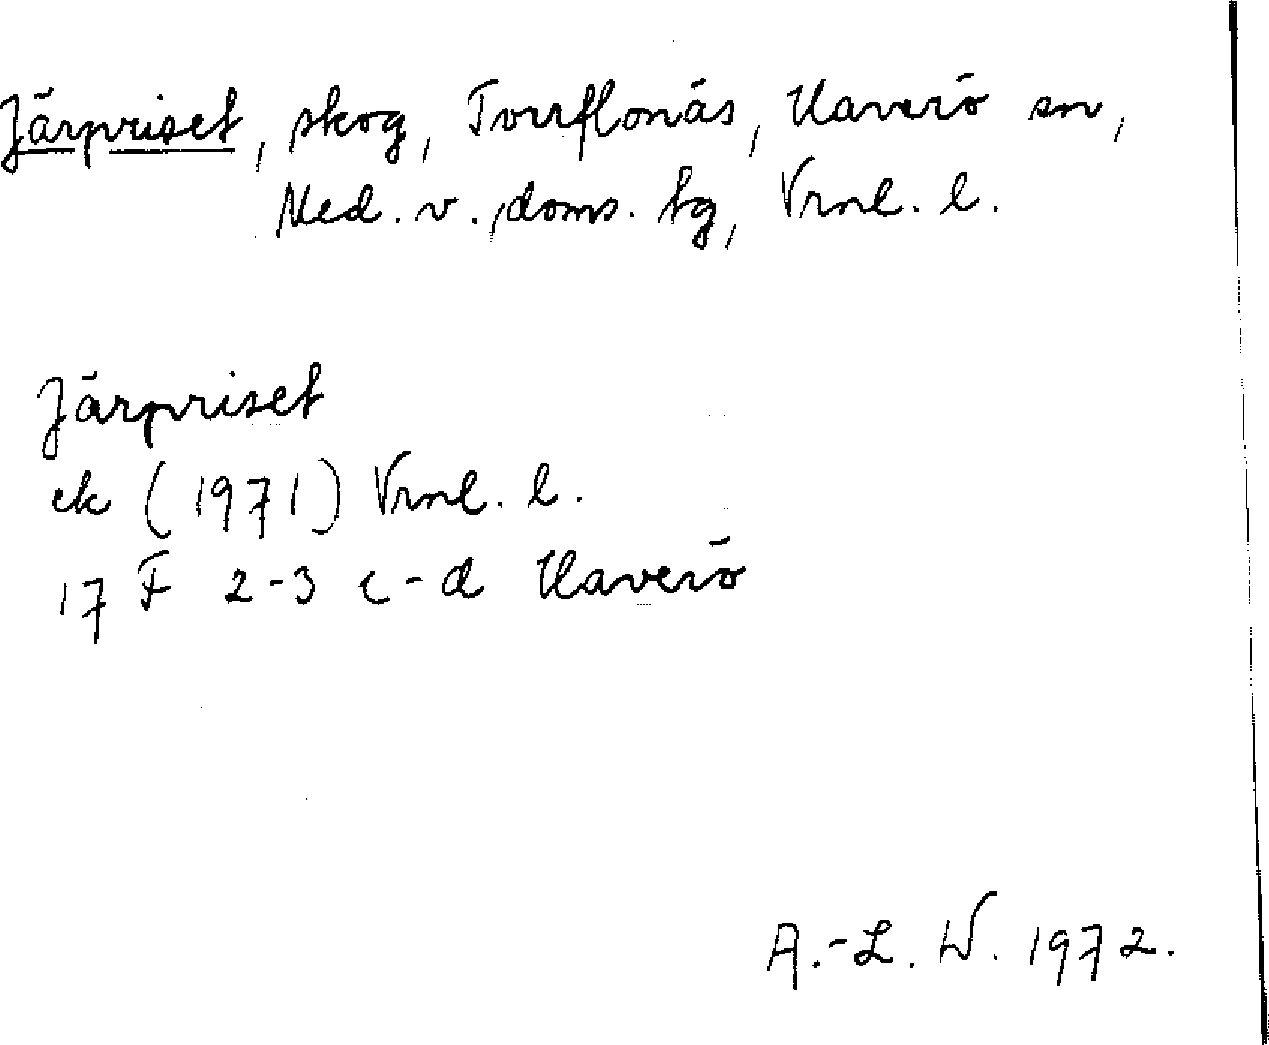 Järpriset, skog, Torrflonäs, Haverö sn,
Med. v. doms. tg, Vrnl. l.
Järpriset
ek (1971) Vrnl. l.
17 F 2-3 c-d Haverö
A.-L. W. 1972.